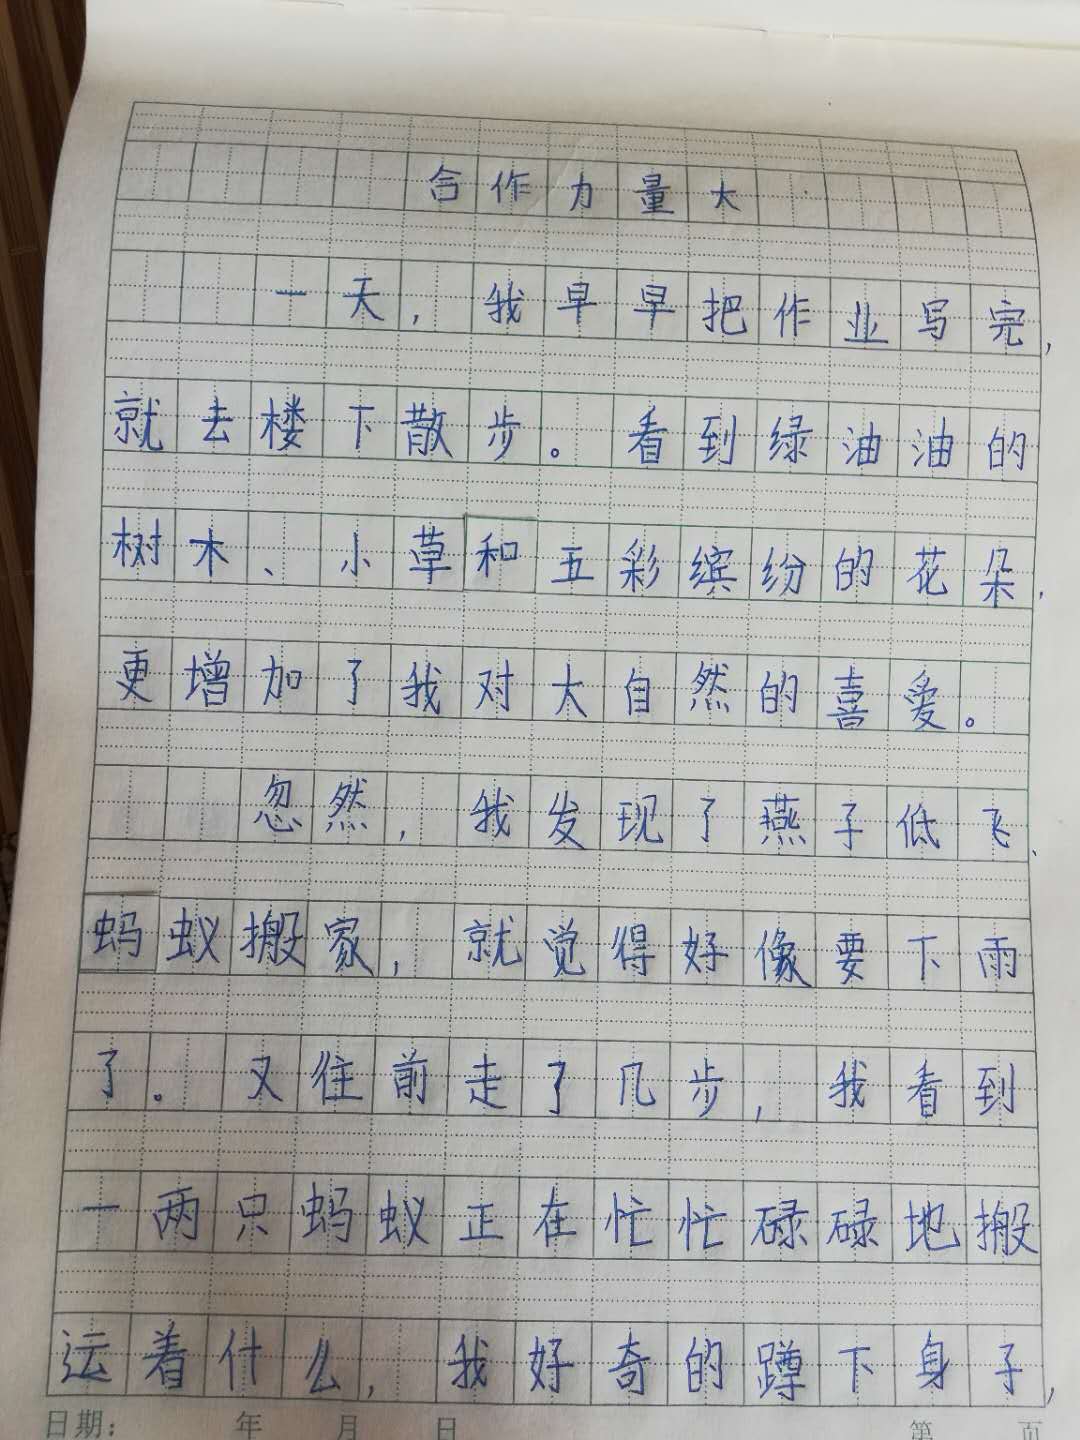 合作力量大
一天，我早早把作业写完，
就去楼下散步。看到绿油油的
树木、小草和五彩缤纷的花朵，
更增加了我对大自然的喜爱。
忽然，我发现了燕子低飞、
蚂蚁搬家，就觉得好像要下雨
了。又往前走了几步，我看到
一两只蚂蚁正在忙忙碌碌地搬
运着什么，我好奇的蹲下身子，
日期： 年 月 日 第 页